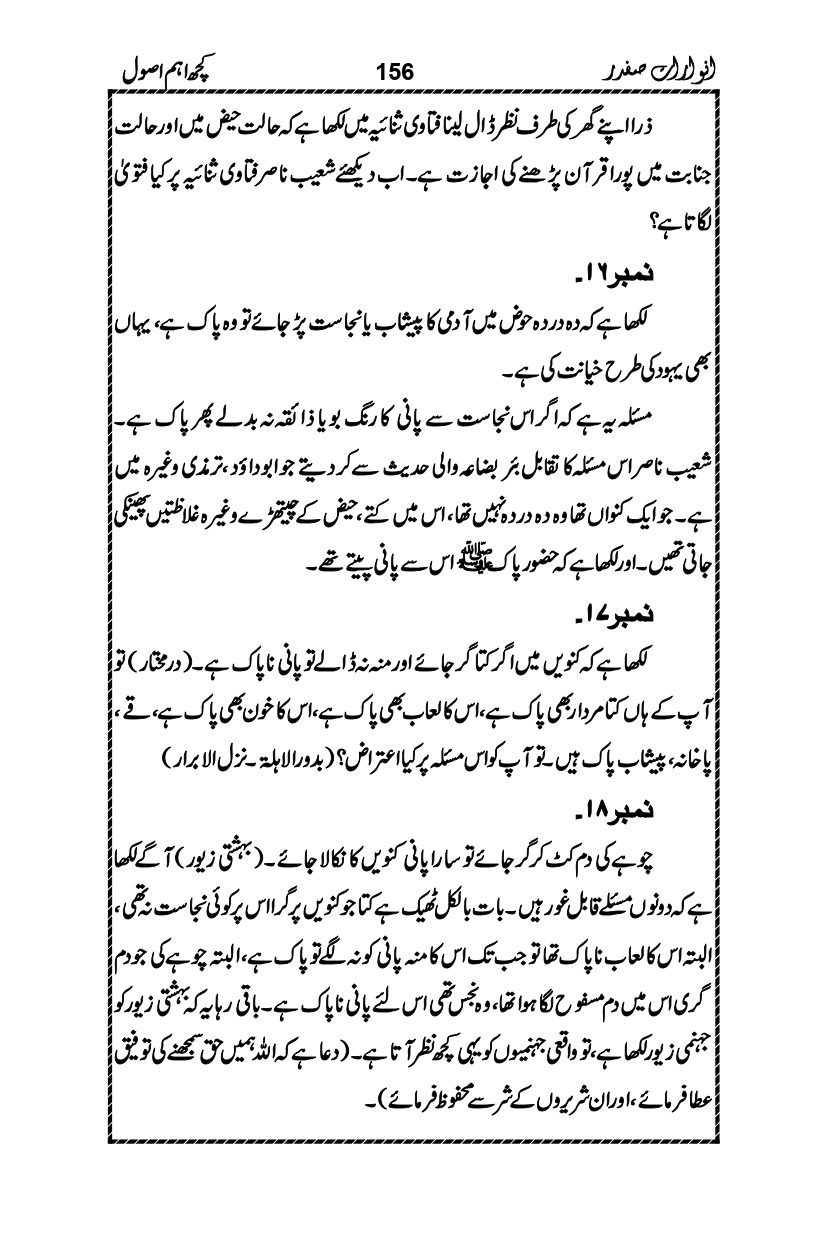 انوارات صفدر 156 کچھ اہم اصول
ذرا اپنے گھر کی طرف نظر ڈال لینا فتاوی ثنائیہ میں لکھا ہے کہ حالت حیض میں اور حالت
جنابت میں پورا قرآن پڑھنے کی اجازت ہے۔ اب دیکھئے شعیب ناصر فتاوی ثنائیہ پر کیا فتویٰ
لگاتا ہے؟
نمبر ۱۶۔
لکھا ہے کہ دہ در دہ حوض میں آدمی کا پیشاب یا نجاست پڑ جائے تو وہ پاک ہے، یہاں
بھی یہود کی طرح خیانت کی ہے۔
مسئلہ یہ ہے کہ اگر اس نجاست سے پانی کا رنگ بو یا ذائقہ نہ بدلے پھر پاک ہے۔
شعیب ناصر اس مسئلہ کا تقابل بئر بضاعہ والی حدیث سے کر دیتے جو ابوداؤد، ترمذی وغیرہ میں
ہے۔ جو ایک کنواں تھا وہ دہ در دہ نہیں تھا، اس میں کتے، حیض کے چیتھڑے وغیرہ غلاظتیں پھینکی
جاتی تھیں۔ اور لکھا ہے کہ حضور پاک ﷺ اس سے پانی پیتے تھے۔
نمبر ۱۷۔
لکھا ہے کہ کنویں میں اگر کتا گر جائے اور منہ نہ ڈالے تو پانی ناپاک ہے۔ (درمختار) تو
آپ کے ہاں کتا مردار بھی پاک ہے، اس کا لعاب بھی پاک ہے، اس کا خون بھی پاک ہے، قے،
پاخانہ، پیشاب پاک ہیں۔ تو آپ کو اس مسئلہ پر کیا اعتراض؟ (بدور الاہلۃ۔ نزل الابرار)
نمبر ۱۸۔
چوہے کی دم کٹ کر گر جائے تو سارا پانی کنویں کا نکالا جائے۔ (بہشتی زیور) آگے لکھا
ہے کہ دونوں مسئلے قابل غور ہیں۔ بات بالکل ٹھیک ہے کتا جو کنویں پر گرا اس پر کوئی نجاست نہ تھی،
البتہ اس کا لعاب ناپاک تھا تو جب تک اس کا منہ پانی کو نہ لگے تو پاک ہے، البتہ چوہے کی جو دم
گری اس میں دم مسفوح لگا ہوا تھا، وہ نجس تھی اس لئے پانی ناپاک ہے۔ باقی رہا یہ کہ بہشتی زیور کو
جہنمی زیور لکھا ہے، تو واقعی جہنمیوں کو یہی کچھ نظر آتا ہے۔ (دعا ہے کہ اللہ ہمیں حق سمجھنے کی توفیق
عطا فرمائے، اور ان شریروں کے شر سے محفوظ فرمائے)۔